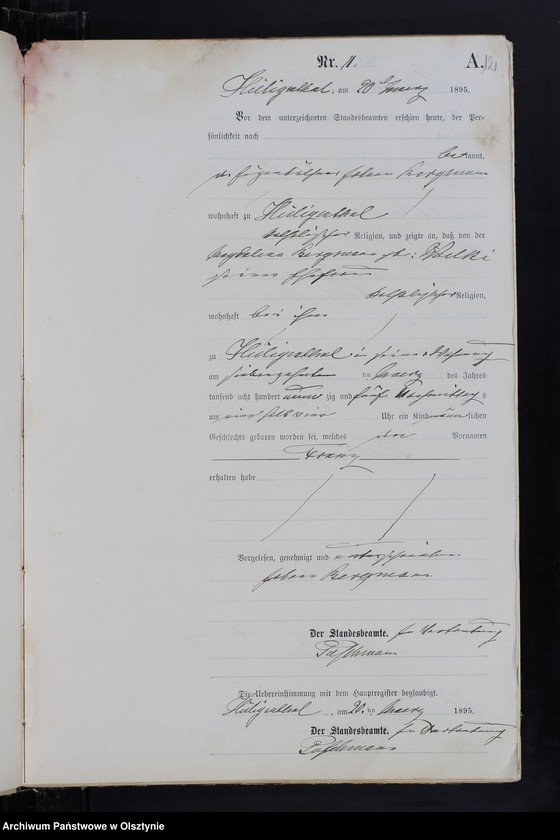 Nr. 11. A. 121
Heiligenthal, am 20ten Maerz 1895.
Vor dem unterzeichneten Standesbeamten erschien heute, der Per-
sönlichkeit nach
bekannt,
der Johann Bergmann
wohnhaft zu Heiligenthal
katholischer Religion, und zeigte an, daß von der
Magdalena Bergmann geb: Wolki
seiner Ehefrau
katholischer Religion,
wohnhaft bei ihm
zu Heiligenthal in seiner Wohnung
am siebenzehnten ten Maerz des Jahres
tausend acht hundert neun zig und fünf Nachmittags
um Uhr ein Kind männlichen
Geschlechts geboren worden sei, welches den Vornamen
Franz
erhalten habe
Vorgelesen, genehmigt und unterschrieben.
Johann Bergmann
Der Standesbeamte. In Vertretung
Die Uebereinstimmung mit dem Hauptregister beglaubigt.
Heiligenthal, am 20. ten Maerz 1895.
Der Standesbeamte. In Vertretung
Archiwum Państwowe w Olsztynie